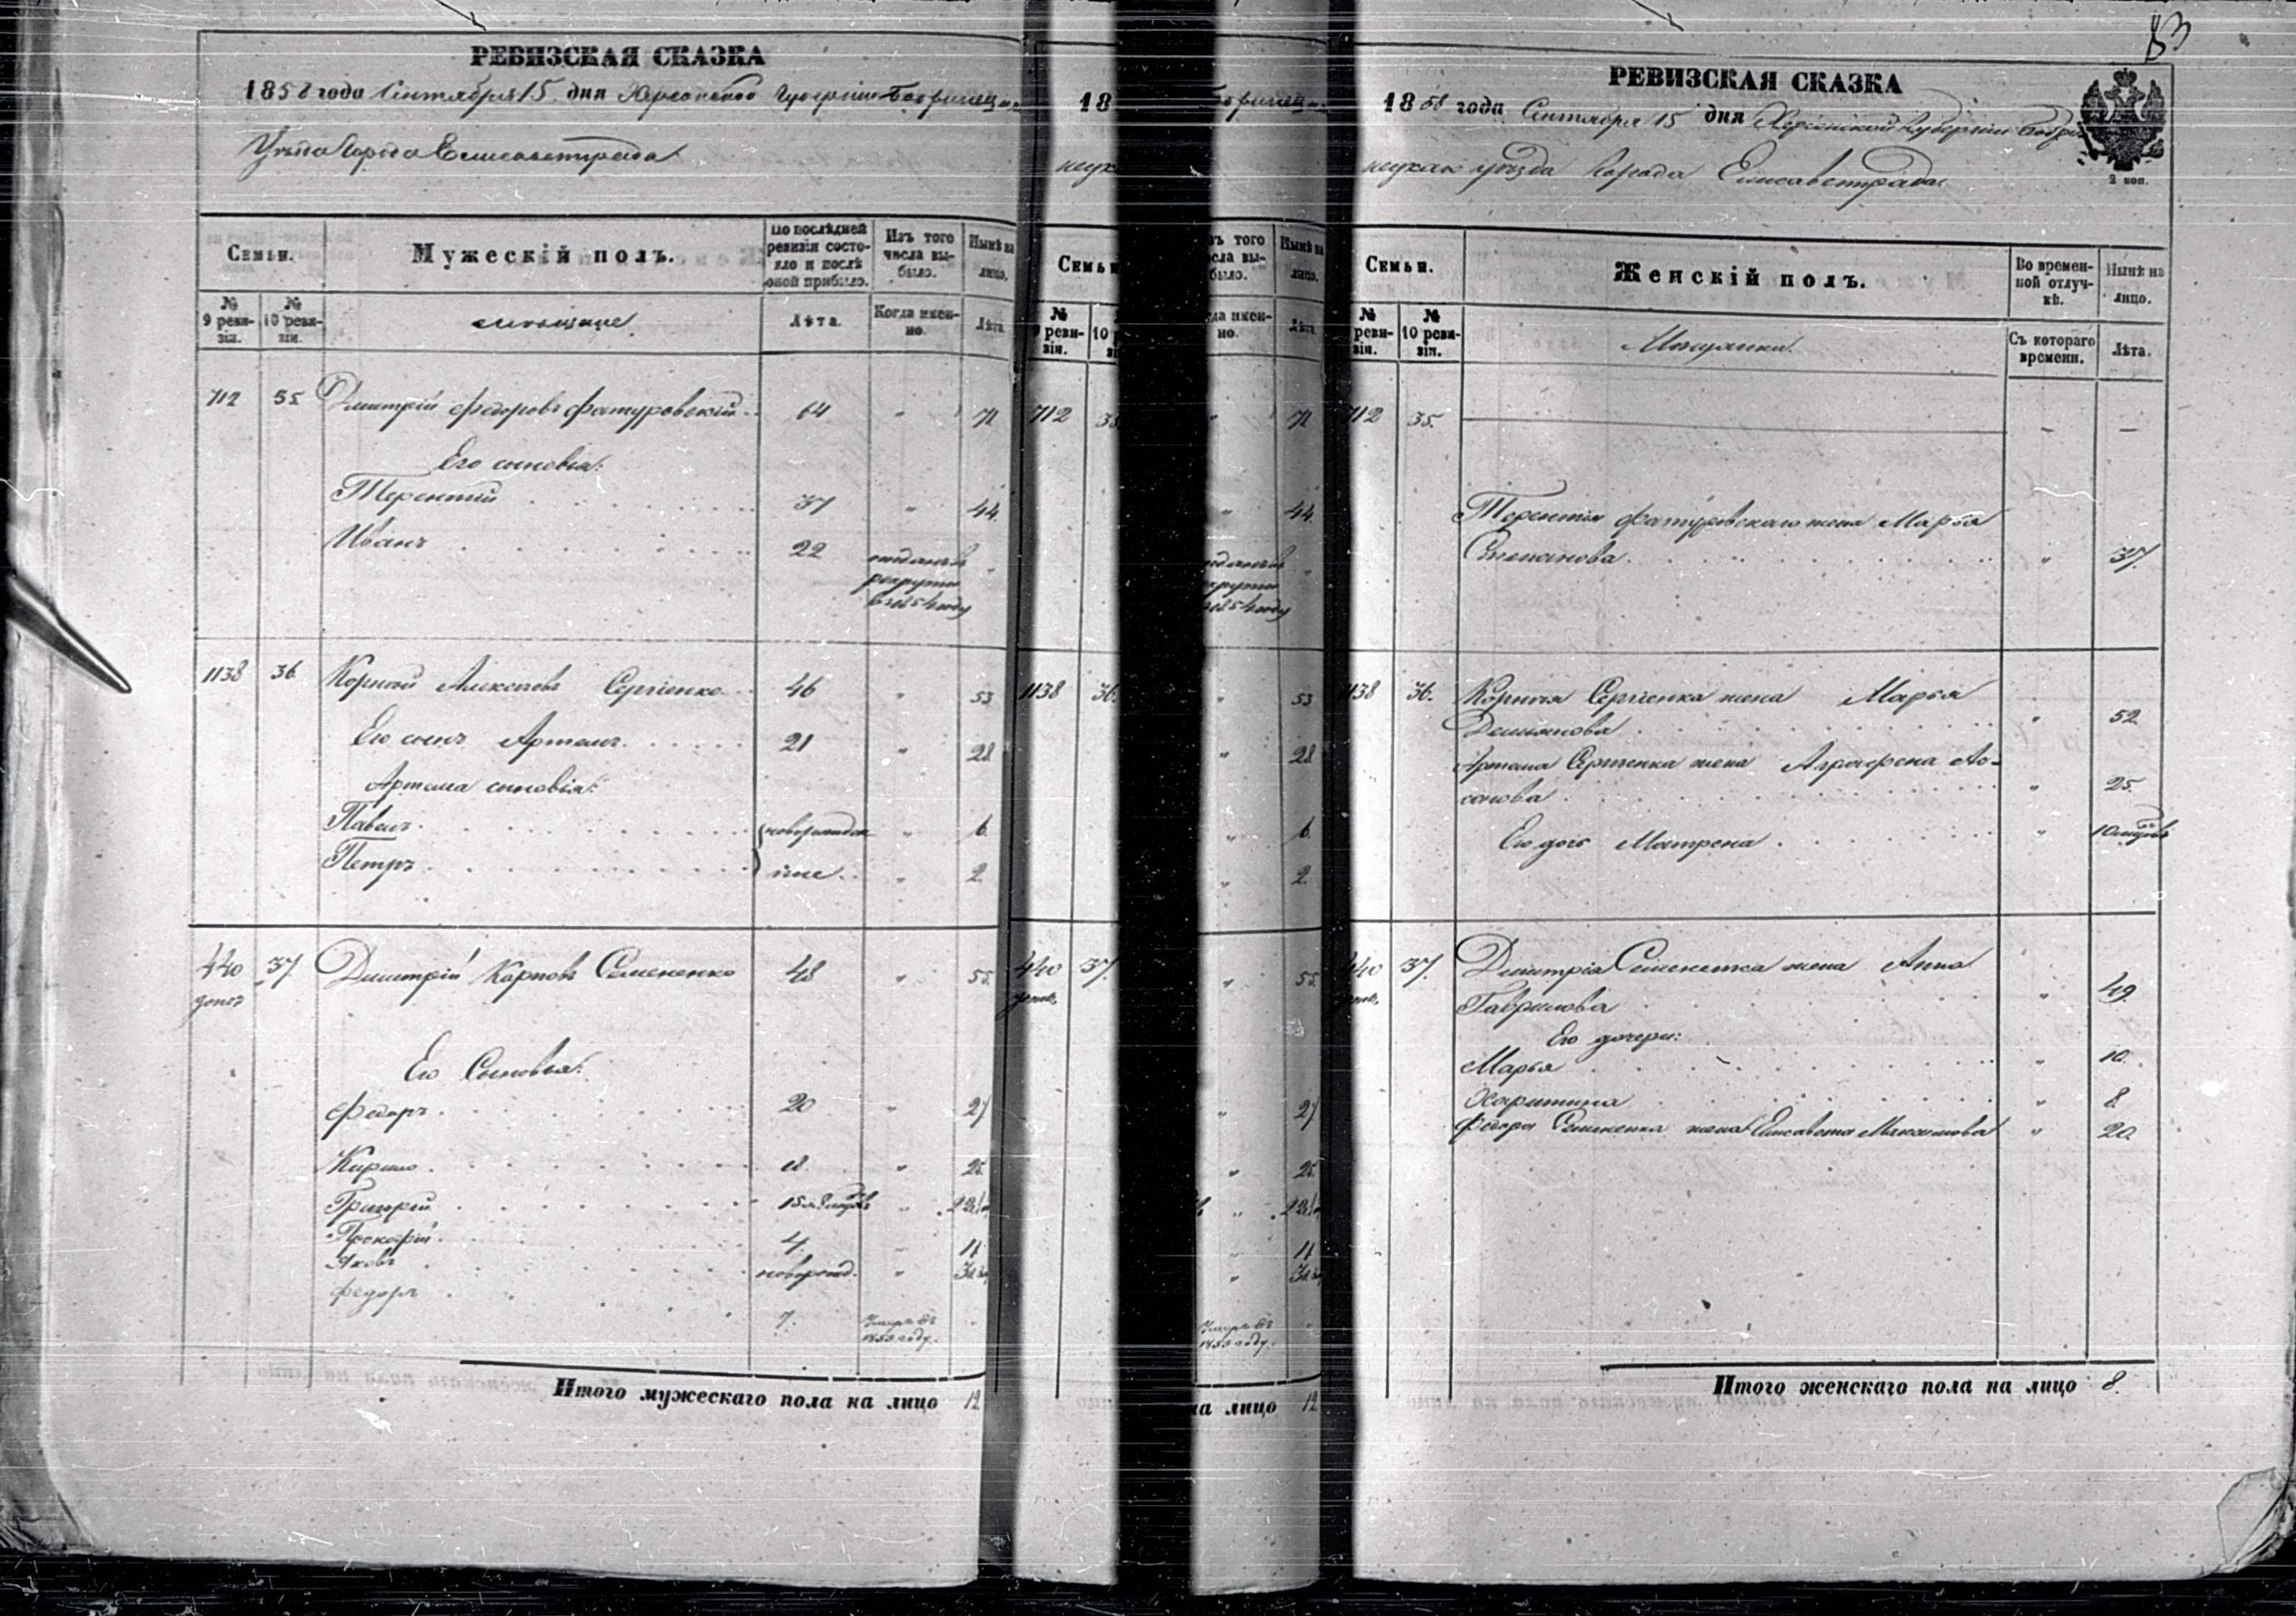 83
РЕВИЗСКАЯ СКАЗКА
1858 года Сентября 15 дня Херсонской Губерніи Бобринец
Уезда Города Елисаветграда
Семьи.
Мужескій полъ.
По послѣдней ревизіи состояло и послѣ оной прибыло.
Изъ того числа выбыло.
Нынѣ на лицо.
№ 9 ревизіи.
№ 10 ревизіи.
мещане
Лѣта.
Когда именно.
Лѣта
712 35 Дмитрій Федоровъ Фатуровскій 64 " 71
Его сыновья:
Терентій 37 " 44.
Иванъ 22 отданъ въ рекруты въ 1854 году "
1138 36 Корней Алексеевъ Сергіенко 46 " 53
Его сынъ Артемъ 21 " 28
Артема сыновья:
Павелъ новорожден " 6
Петръ ные " 2
440 37 Дмитрій Карповъ Семененко 48 " 55
допол
Его Сыновья:
Федоръ 20 " 27
Кирило 18 " 25
Григорій 15 "
Прокофій 4 11
Яковъ новорожд. "
Федоръ 7. Умеръ въ 1853 году.
Итого мужескаго пола на лицо 12
18
неук
Семьи
№ 9 ревизіи.
10 р
712 35
1138 36.
440 37.
допол.
РЕВИЗСКАЯ СКАЗКА
1858 года Сентября 15 дня Херсонской Губерніи Бобри
нецкаго уезда Города Елисаветграда
2 коп.
Семьи.
Женскій полъ.
Во временной отлучкѣ.
Нынѣ на лицо.
№ 9 ревизіи.
№ 10 ревизіи.
Мещанки.
Съ котораго времени.
Лѣта.
712 35. — —
Терентія Фатуровскаго жена Марья
Степанова " 37
1138 36. Корнея Сергіенка жена Марья
Демьянова " 52
Артема Сергіенка жена Аграфена
" 25.
Его дочь Матрена "
440 37. Дмитрія Семененка жена Анна
Гаврилова " 49.
Его дочери:
Марья " 10.
Харитина " 8
Федора Семененка жена Елисавета Максимова " 20
Итого женскаго пола на лицо 8.